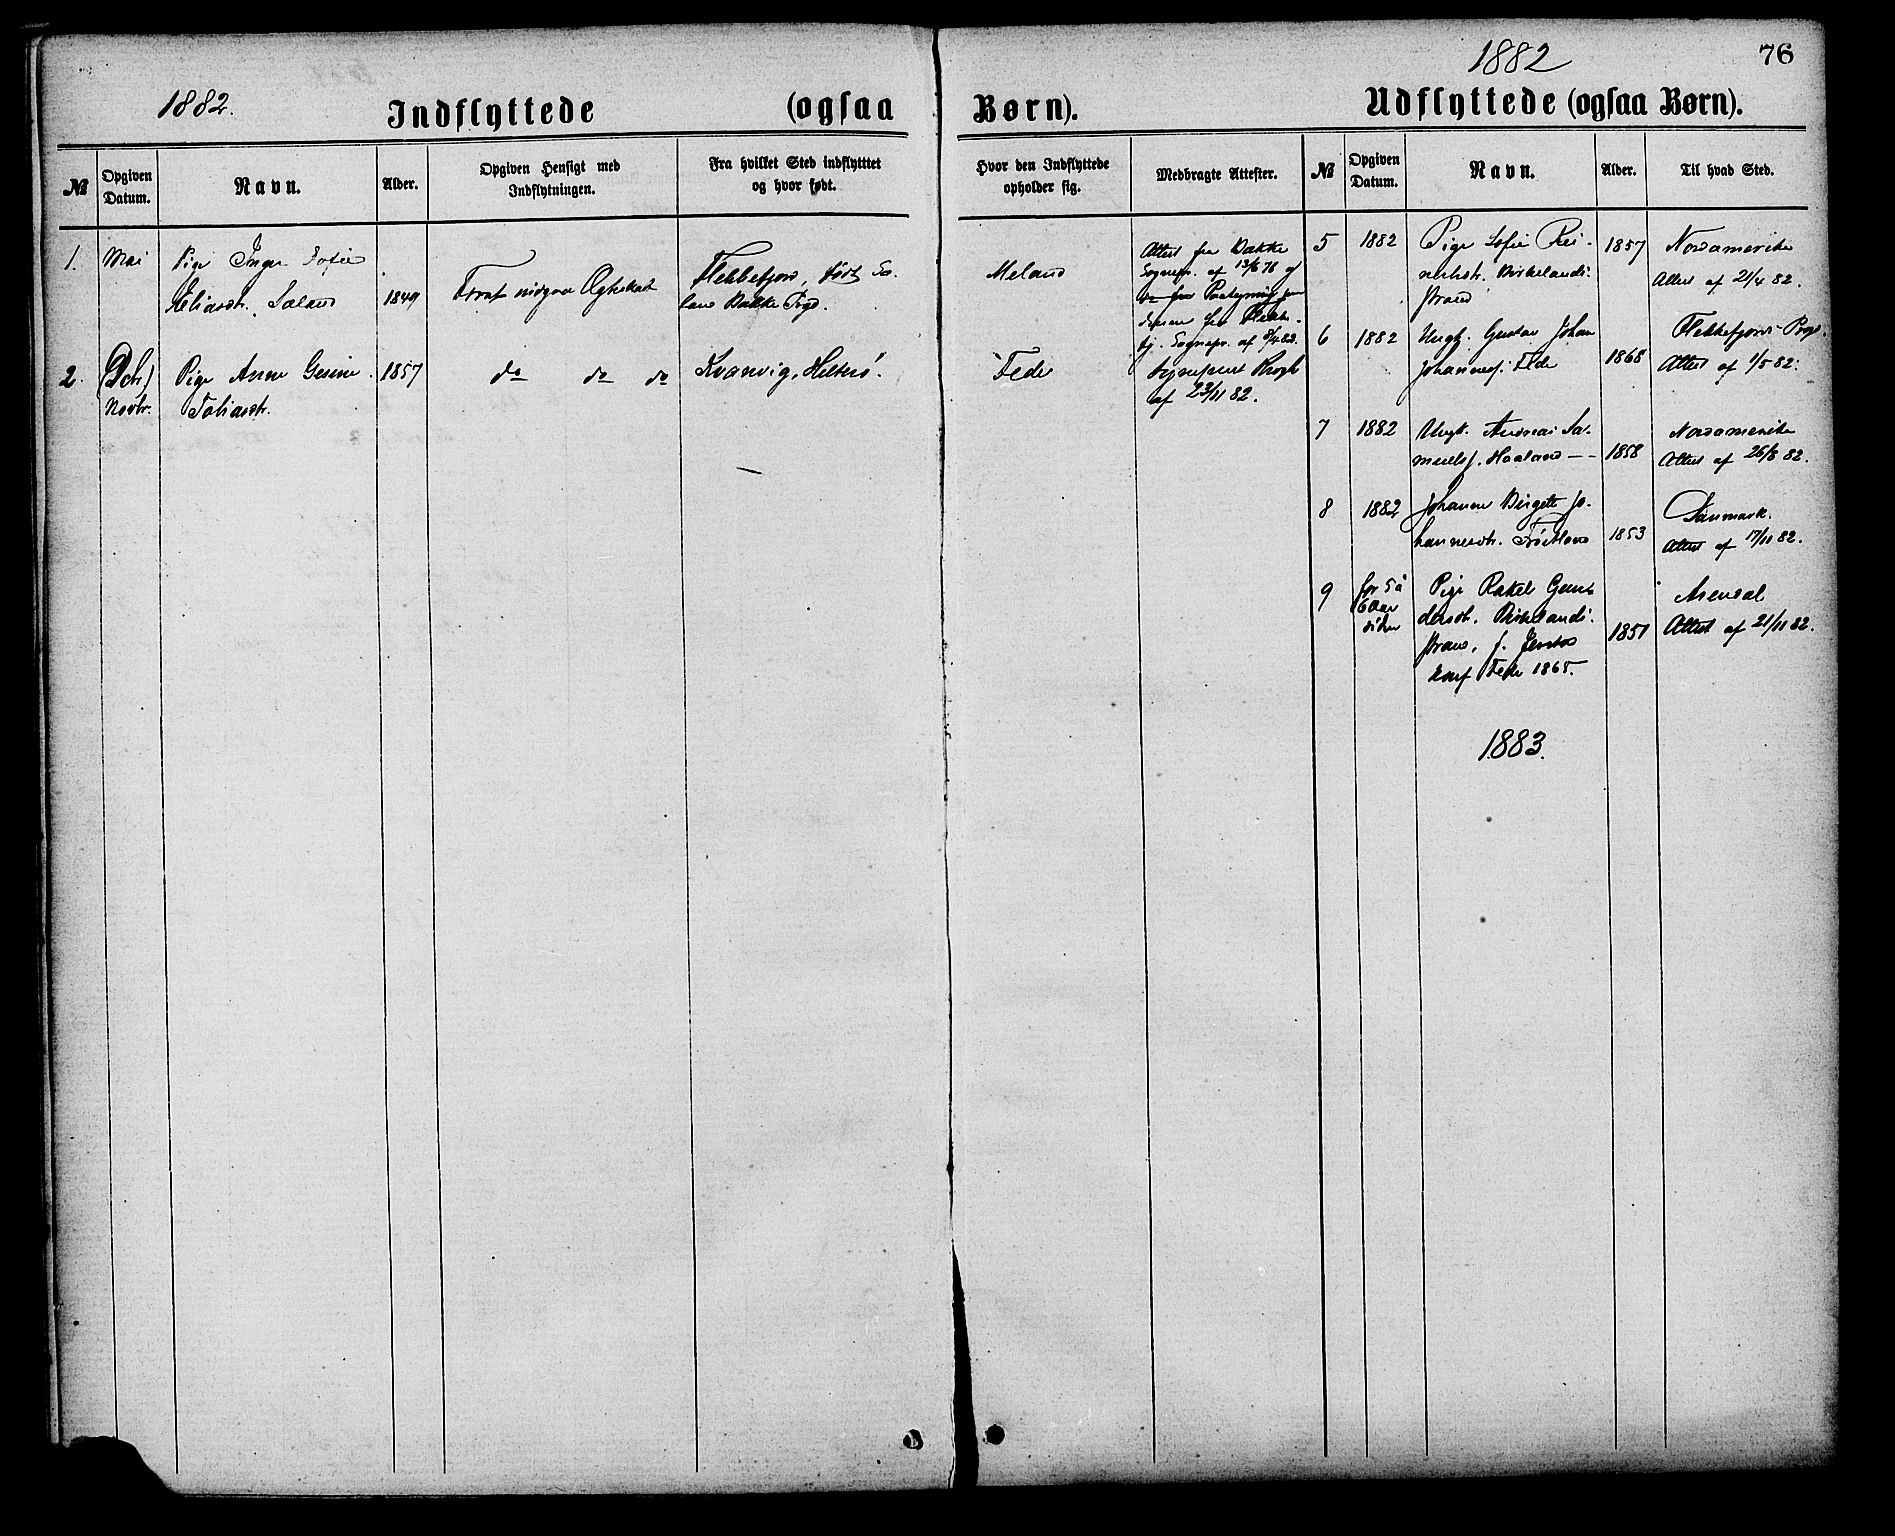 1882.
Indflyttede (ogsaa Børn).
№
Opgiven Datum.
Navn.
Alder.
Opgiven Hensigt med Indflytningen.
Fra hvilket Sted indflytttet og hvor født.
Hvor den Indflyttede opholder sig.
Medbragte Attester.
1. Mai Pige Inger Sofie
Eliasdtr. Sæland 1849
Ægteskab
Flekkefjord, født Sæ-
land Bakke Prgd.
Meland
Attest fra Bakke
Sognepr. af 13/6 76 og
Sognepr. af
2. (Octr.)
Novbr.
Pige Anne Gesine
Tobiasdtr.
1857
do do do
Kvanvig, Hitterø.
Fede
Krogh
af 23/11 82.
1882
76
Udflyttede (ogsaa Børn).
№
Opgiven Datum.
Navn.
Alder.
Til hvad Sted.
5 1882 Pige Sofie Rei-
Birkelands-
strand
1857 Nordamerika
Attest af 21/4 82.
6 1882 Ungk. Gustav Johan
Johanness. Fede 1868
Flekkefjords Prgd.
Attest af 1/5 82.
7 1882 Ungk. Andreas Sa-
muelss. Haaland 1858
Nordamerika
Attest af 26/8 82.
8 1882 Johanne Birgitte Jo-
hannesdtr. 1853
Danmark.
Attest af 17/11 82.
9 for 5 à
6 Aar
siden
Pige Rakel Gun-
dersdt. Birkelands-
strand, f.
konf Fede 1865.
1851
Arendal
Attest af 21/11 82.
1883.